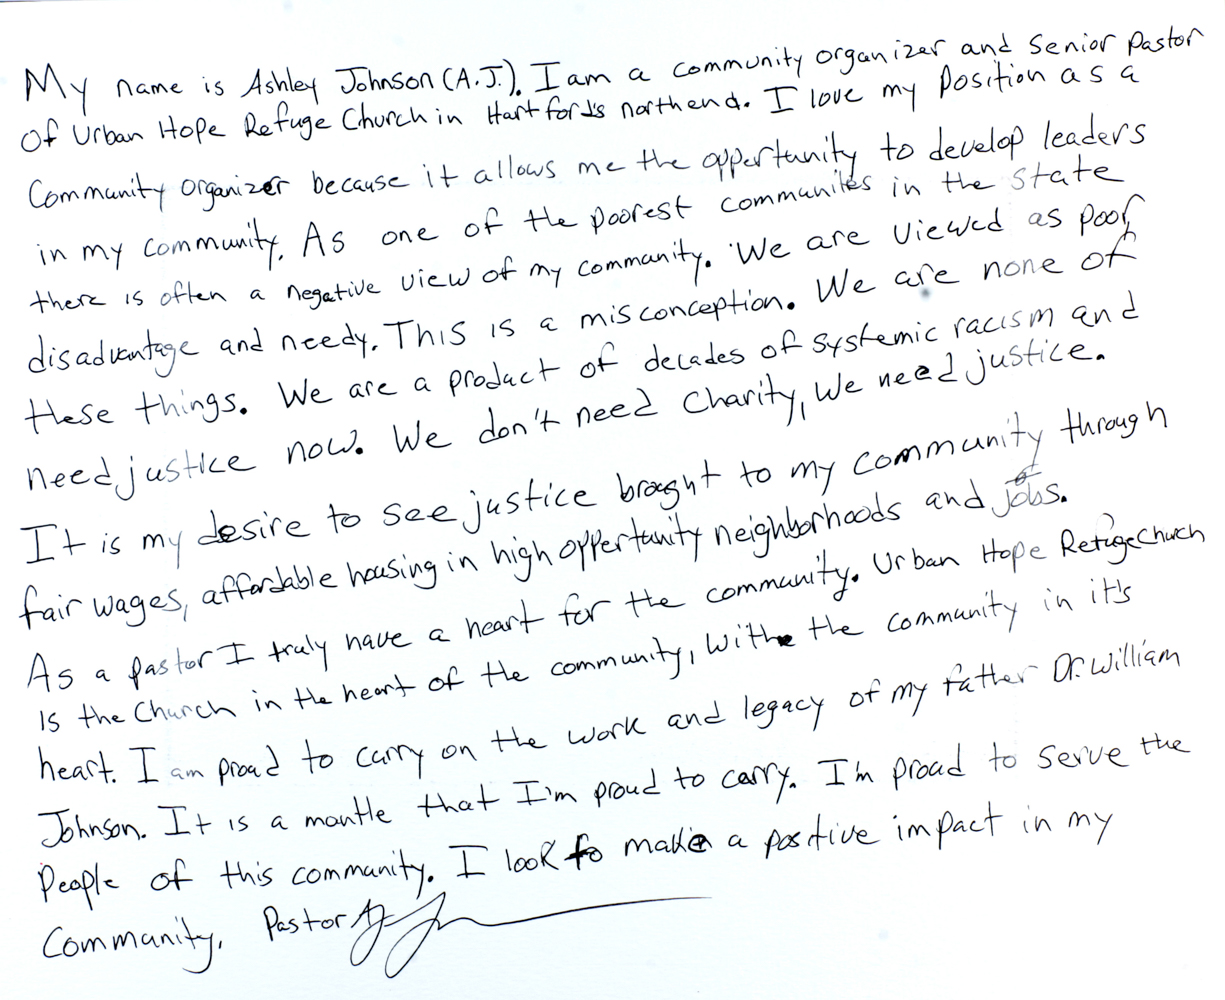 My name is Ashley Johnson (A.J.). I am a community organizer and Senior Pastor
Of Urban Hope Refuge Church in Hartford's northend. I love my position as a
Community organizer because it allows me the oppertunity to develop leaders
in my community. As one of the poorest communites in the State
there is often a negative view of my community. We are viewed as poor,
disadvantage and needy. This is a misconception. We are none of
these things. We are a product of decades of systemic racism and
need justice now. We don't need charity, we need justice.
It is my desire to see justice brought to my community through
fair wages, affordable housing in high oppertunity neighborhoods and jobs.
As a pastor I truly have a heart for the community. Urban Hope Refuge Church
is the Church in the heart of the community, with the community in it's
heart. I am proud to carry on the work and legacy of my father Dr. William
Johnson. It is a mantle that I'm proud to carry. I'm proud to serve the
People of this community. I look to make a positive impact in my
Community. Pastor AJ